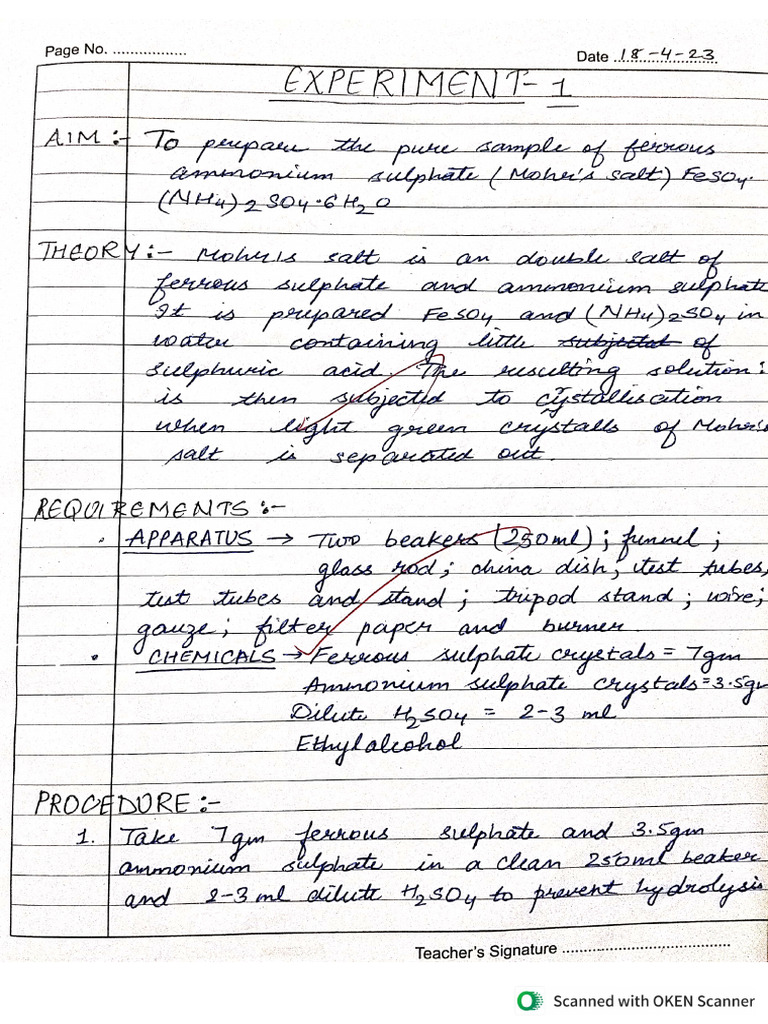 Page No. .................
Date 18-4-23
EXPERIMENT-1
AIM :- To prepare the pure sample of ferrous
ammonium sulphate (Mohr's salt) FeSO4.
(NH4)2SO4.6H2O
THEORY :- Mohr's salt is an double salt of
ferrous sulphate and ammonium sulphate
It is prepared FeSO4 and (NH4)2SO4 in
water containing little subjected of
sulphuric acid. The resulting solution:
is then subjected to cystallisation
when light green crystalls of Mohr's
salt is separated out.
REQUIREMENTS :-
. APPARATUS → Two beakers (250ml) ; funnel ;
glass rod; china dish; test tubes;
test tubes and stand ; tripod stand ; wire;
gauze ; filter paper and burner.
. CHEMICALS → Ferrous sulphate crystals = 7gm
Ammonium sulphate crystals = 3.5gm
Dilute H2SO4 = 2-3 ml
Ethylalcohol
PROCEDURE :-
1. Take 7gm ferrous sulphate and 3.5gm
ammonium sulphate in a clean 250ml beaker
and 2-3 ml dilute H2SO4 to prevent hydrolysis
Teacher's Signature ....................................
Scanned with OKEN Scanner